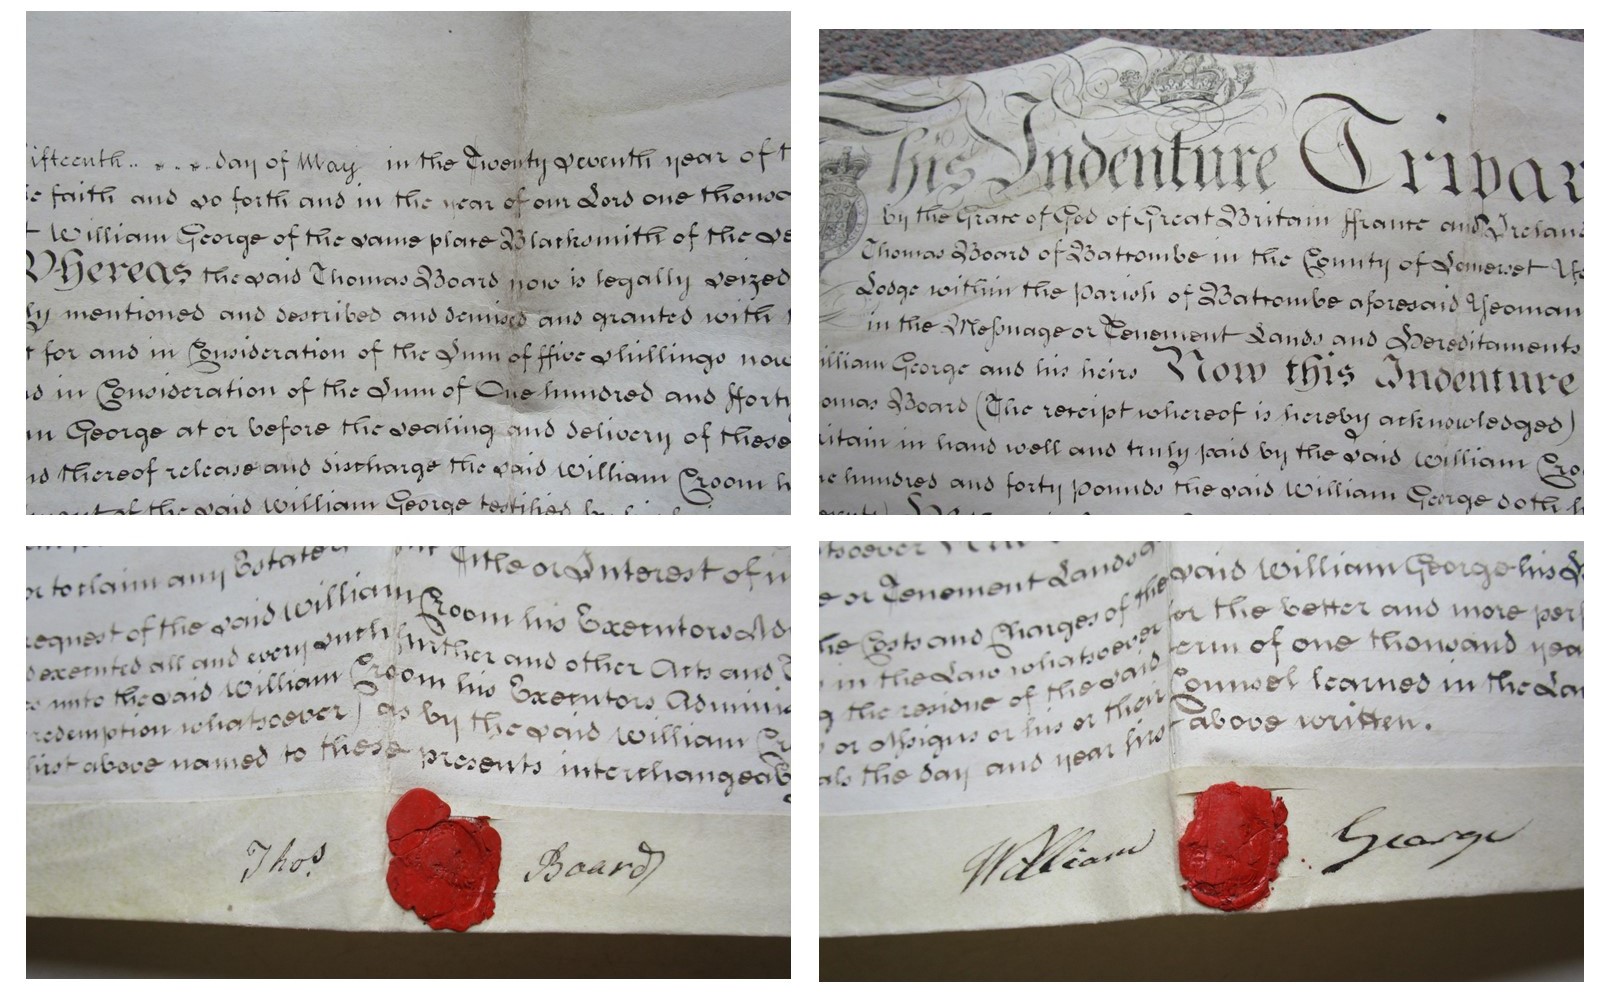 ifteenth .. . . . day of May in the Twenty Seventh year of t
e faith and so forth and in the year of our Lord one thous
t William George of the same place Blacksmith of the se
Whereas the said Thomas Board now is legally seized
ly mentioned and described and demised and granted with
t for and in Consideration of the Sum of ffive shillings now
d in Consideration of the Sum of One hundred and fforty
m George at or before the sealing and delivery of these
nd thereof release and discharge the said William Croom h
ment of the said William George testified by
This Indenture Tripar
by the Grace of God of Great Britain ffrance and Ireland
Thomas Board of Battcombe in the County of Somerset
Lodge within the Parish of Battcombe aforesaid Yeoman
in the Messuage or Tenement Lands and Hereditaments
illiam George and his heirs Now this Indenture
omas Board (The receipt whereof is hereby acknowledged)
ritain in hand well and truly paid by the said William Cro
ne hundred and forty pounds the said William George doth h
or to claim any Estate Title or Interest of in
request of the said William Croom his Executors Ad
d executed all and every such ffurther and other Acts and
s unto the said William Croom his Executors Adminis
redemption whatsoever) as by the said William Cr
first above named to these presents interchangeab
Thos. Board
tsoever
e or Tenement Lands said William George his
he Costs and Charges of the for the better and more perf
in the Law whatsoever term of one thousand yea
g the residue of the said Counsel learned in the La
or Assigns or his or their above written.
als the day and year first
William George